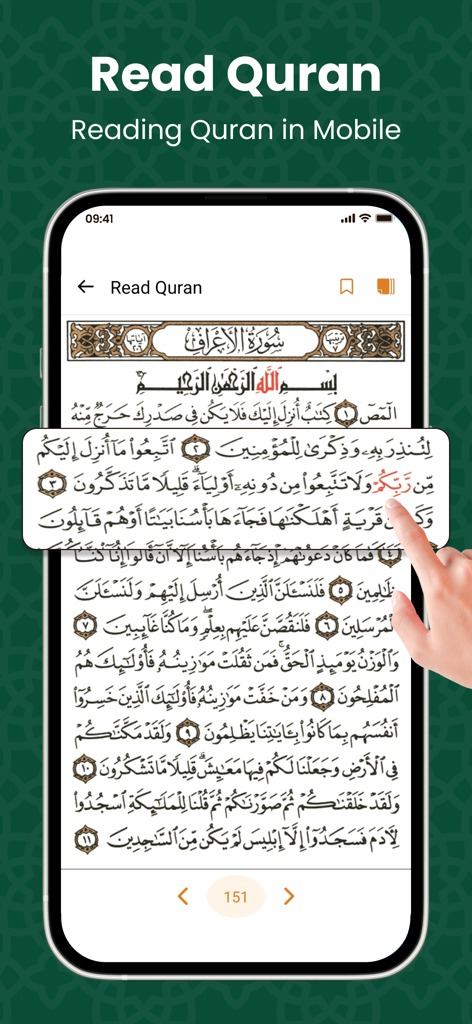 Read Quran
Reading Quran in Mobile
09:41
Read Quran
سُورَةُ الأَعْرَافِ
بِسْمِ اللَّهِ الرَّحْمَٰنِ الرَّحِيمِ
الٓمٓصٓ ١ كِتَٰبٌ أُنزِلَ إِلَيْكَ فَلَا يَكُن فِى صَدْرِكَ حَرَجٌ مِّنْهُ
لِتُنذِرَ بِهِۦ وَذِكْرَىٰ لِلْمُؤْمِنِينَ ٢ ٱتَّبِعُوا۟ مَآ أُنزِلَ إِلَيْكُم
مِّن رَّبِّكُمْ وَلَا تَتَّبِعُوا۟ مِن دُونِهِۦٓ أَوْلِيَآءَ ۗ قَلِيلًا مَّا تَذَكَّرُونَ ٣
قَرْيَةٍ أَهْلَكْنَٰهَا فَجَآءَهَا بَأْسُنَا بَيَٰتًا أَوْ هُمْ قَآئِلُونَ
فَمَا كَانَ دَعْوَىٰهُمْ إِذْ جَآءَهُم بَأْسُنَآ إِلَّآ أَن قَالُوٓا۟ إِنَّا كُنَّا
ظَٰلِمِينَ ٥ فَلَنَسْـَٔلَنَّ ٱلَّذِينَ أُرْسِلَ إِلَيْهِمْ وَلَنَسْـَٔلَنَّ
ٱلْمُرْسَلِينَ ٦ فَلَنَقُصَّنَّ عَلَيْهِم بِعِلْمٍ ۖ وَمَا كُنَّا غَآئِبِينَ ٧
وَٱلْوَزْنُ يَوْمَئِذٍ ٱلْحَقُّ ۚ فَمَن ثَقُلَتْ مَوَٰزِينُهُۥ فَأُو۟لَٰٓئِكَ هُمُ
ٱلْمُفْلِحُونَ ٨ وَمَنْ خَفَّتْ مَوَٰزِينُهُۥ فَأُو۟لَٰٓئِكَ ٱلَّذِينَ خَسِرُوٓا۟
أَنفُسَهُم بِمَا كَانُوا۟ بِـَٔايَٰتِنَا يَظْلِمُونَ ٩ وَلَقَدْ مَكَّنَّٰكُمْ
فِى ٱلْأَرْضِ وَجَعَلْنَا لَكُمْ فِيهَا مَعَٰيِشَ ۗ قَلِيلًا مَّا تَشْكُرُونَ ١٠
وَلَقَدْ خَلَقْنَٰكُمْ ثُمَّ صَوَّرْنَٰكُمْ ثُمَّ قُلْنَا لِلْمَلَٰٓئِكَةِ ٱسْجُدُوا۟
لِـَٔادَمَ فَسَجَدُوٓا۟ إِلَّآ إِبْلِيسَ لَمْ يَكُن مِّنَ ٱلسَّٰجِدِينَ ١١
151